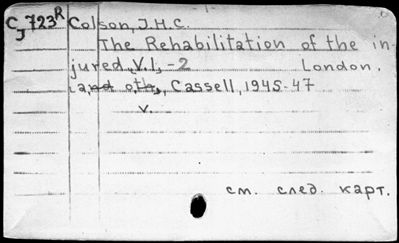 CJ723R Colson, J.H.C.
The Rehabilitation of the in-
jured, V.1, -2 London.
[a,and oth., Cassell, 1945-47
v.
см. след. карт.